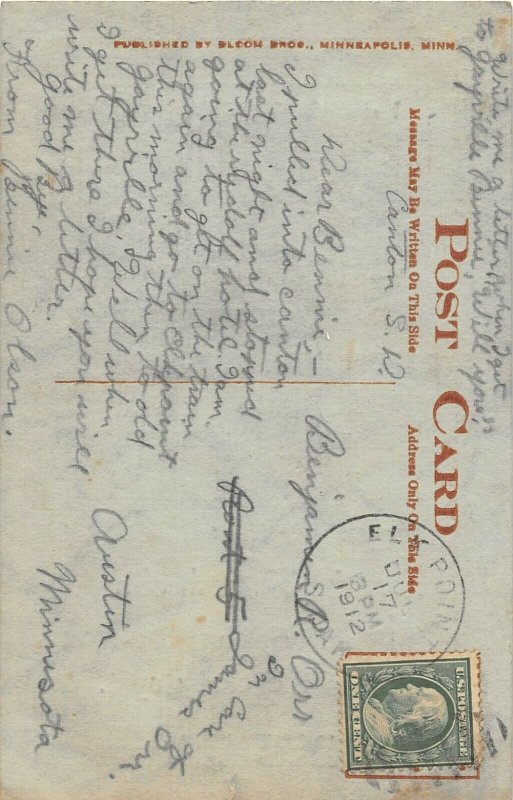 write me a letter when I get
to Gayville Bennie, Will you?
PUBLISHED BY BLOOM BROS., MINNEAPOLIS, MINN.
POST CARD
Message May Be Written On This Side
Address Only On This Side
Canton S. D.
Dear Bennie,—
I pulled into Canton
last night and stopped
at the hotel. I am
going to get on the train
again and go to Elkpoint
this morning then to old
Gayville. Well when
I get there I hope you will
write me a letter.
Good bye,
From Olson.
ELK POINT
17
3 PM
1912
U.S. POSTAGE
ONE CENT
Benjamin R. Orr
℅ Care
James Orr
Austin
Minnesota